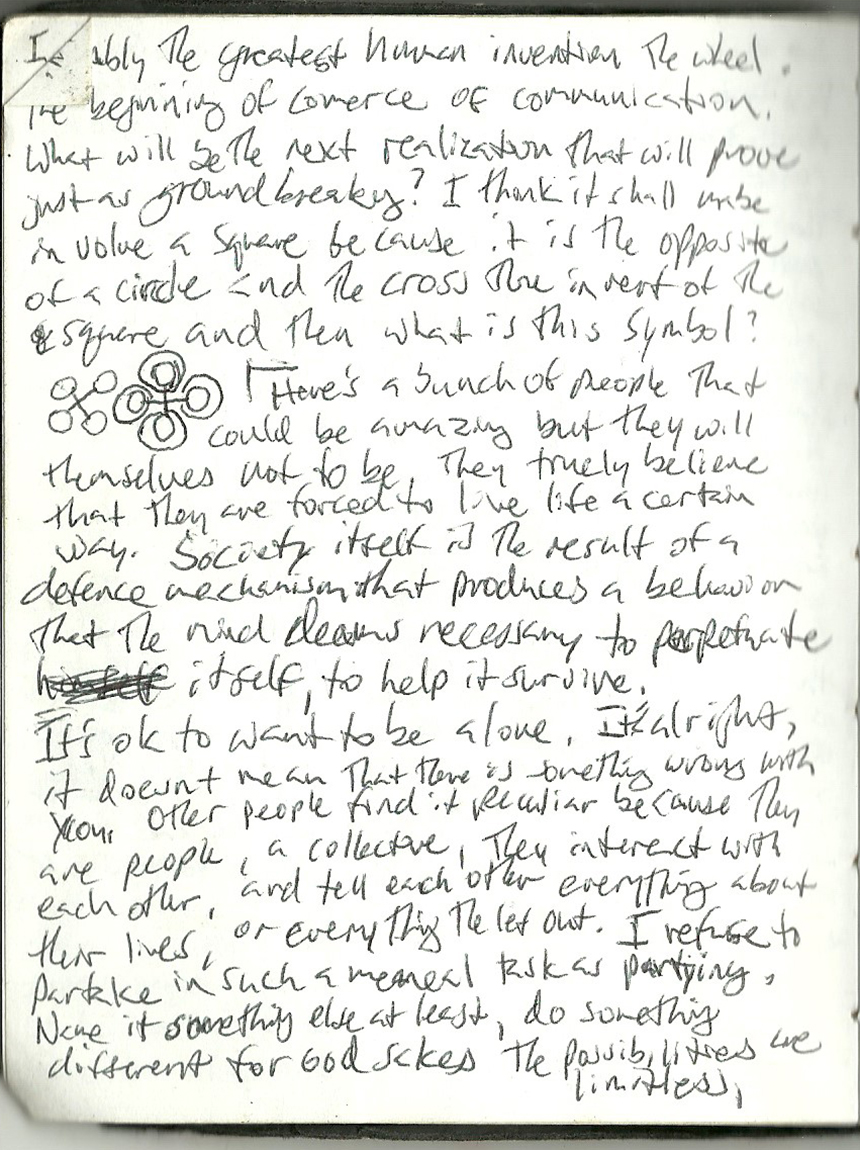 ably the greatest human invention the wheel.
The beginning of comerce of communication.
What will be the next realization that will prove
just as groundbreaky? I think it shall
involve a square because it is the opposite
of a circle and the cross the invert of the
square and then what is this symbol?
There's a bunch of people that
could be amazing but they will
themselves not to be, They truely believe
that they are forced to live life a certain
way. Society itself is the result of a
defence mechanism that produces a behavior
that the mind deems necessary to perpetuate
itself, to help it survive.
It's ok to want to be alone, It's alright,
it doesn't mean that there is something wrong with
you, other people find it peculiar because they
are people, a collective, They interect with
each other, and tell each other everything about
their lives, or everything the let out. I refuse to
partake in such a meneal task as partying,
Name it something else at least, do something
different for God sakes the possibilities are
limitless,